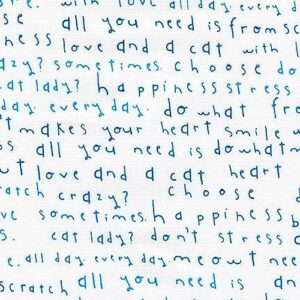 e. with love all day. every day
se all you need is from sc
ness love and a cat with l
azy? sometimes. choose do
cat lady? happiness stress
day. every day. do what fro
't makes your heart smile w
s all you need is do what m
ut love and a cat heart
ratch crazy? choose
ve sometimes. happiness b
s. cat lady? don't stress
e. all day. every day. meowt need
scratch all you need is an